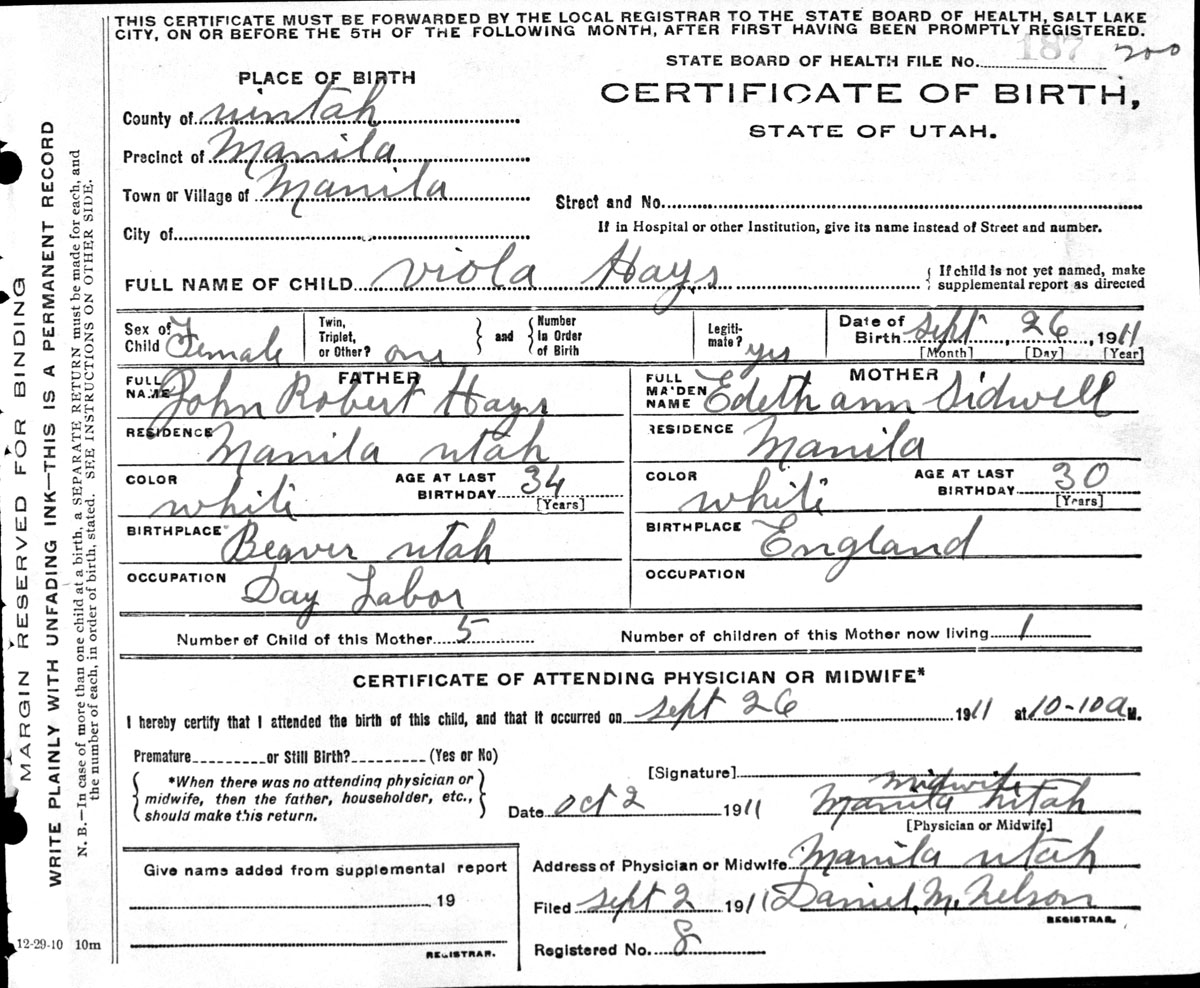 THIS CERTIFICATE MUST BE FORWARDED BY THE LOCAL REGISTRAR TO THE STATE BOARD OF HEALTH, SALT LAKE
CITY, ON OR BEFORE THE 5TH OF THE FOLLOWING MONTH, AFTER FIRST HAVING BEEN PROMPTLY REGISTERED.
STATE BOARD OF HEALTH FILE No. 187 200
PLACE OF BIRTH
CERTIFICATE OF BIRTH,
STATE OF UTAH.
County of uintah
Precinct of Manila
Town or Village of Manila
Street and No.
City of
If in Hospital or other Institution, give its name instead of Street and number.
FULL NAME OF CHILD Viola Hays { If child is not yet named, make
supplemental report as directed
Sex of Child Female
Twin, Triplet, or Other? one } and { Number in Order of Birth
Legiti- mate? yes
Date of Birth sept 26, 1911
[Month] [Day] [Year]
FATHER
FULL NAME John Robert Hays
MOTHER
FULL MAIDEN NAME Edeth ann Sidwell
RESIDENCE Manila utah
RESIDENCE Manila
COLOR white AGE AT LAST BIRTHDAY 34 [Years]
COLOR white AGE AT LAST BIRTHDAY 30 [Years]
BIRTHPLACE Beaver utah
BIRTHPLACE England
OCCUPATION Day Labor
OCCUPATION
Number of Child of this Mother 5 Number of children of this Mother now living 1
CERTIFICATE OF ATTENDING PHYSICIAN OR MIDWIFE*
I hereby certify that I attended the birth of this child, and that it occurred on sept 26 1911 at 10-10 a M.
Premature or Still Birth? (Yes or No)
{ *When there was no attending physician or
midwife, then the father, householder, etc.,
should make this return. }
[Signature] midwife
Date oct 2 1911 Manila utah
[Physician or Midwife]
Give name added from supplemental report
19
REGISTRAR.
Address of Physician or Midwife Manila utah
Filed sept 2 1911 Daniel M. Nelson
REGISTRAR.
Registered No. 8
12-29-10 10m
MARGIN RESERVED FOR BINDING
WRITE PLAINLY WITH UNFADING INK—THIS IS A PERMANENT RECORD
N. B.—In case of more than one child at a birth, a SEPARATE RETURN must be made for each, and
the number of each, in order of birth, stated. SEE INSTRUCTIONS ON OTHER SIDE.